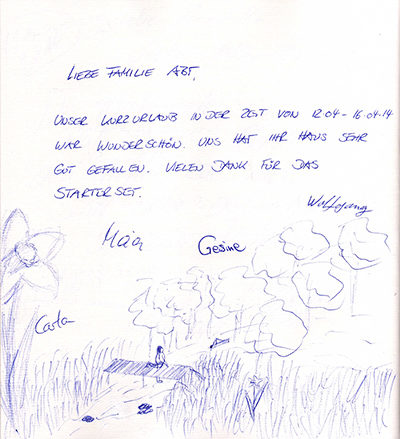 LIEBE FAMILIE ABT,
UNSER KURZURLAUB IN DER ZEIT VON 12.04 - 16.04.14
WAR WUNDERSCHÖN. UNS HAT IHR HAUS SEHR
GUT GEFALLEN. VIELEN DANK FÜR DAS
STARTERSET.
Wolfgang
Maia
Gesine
Carla